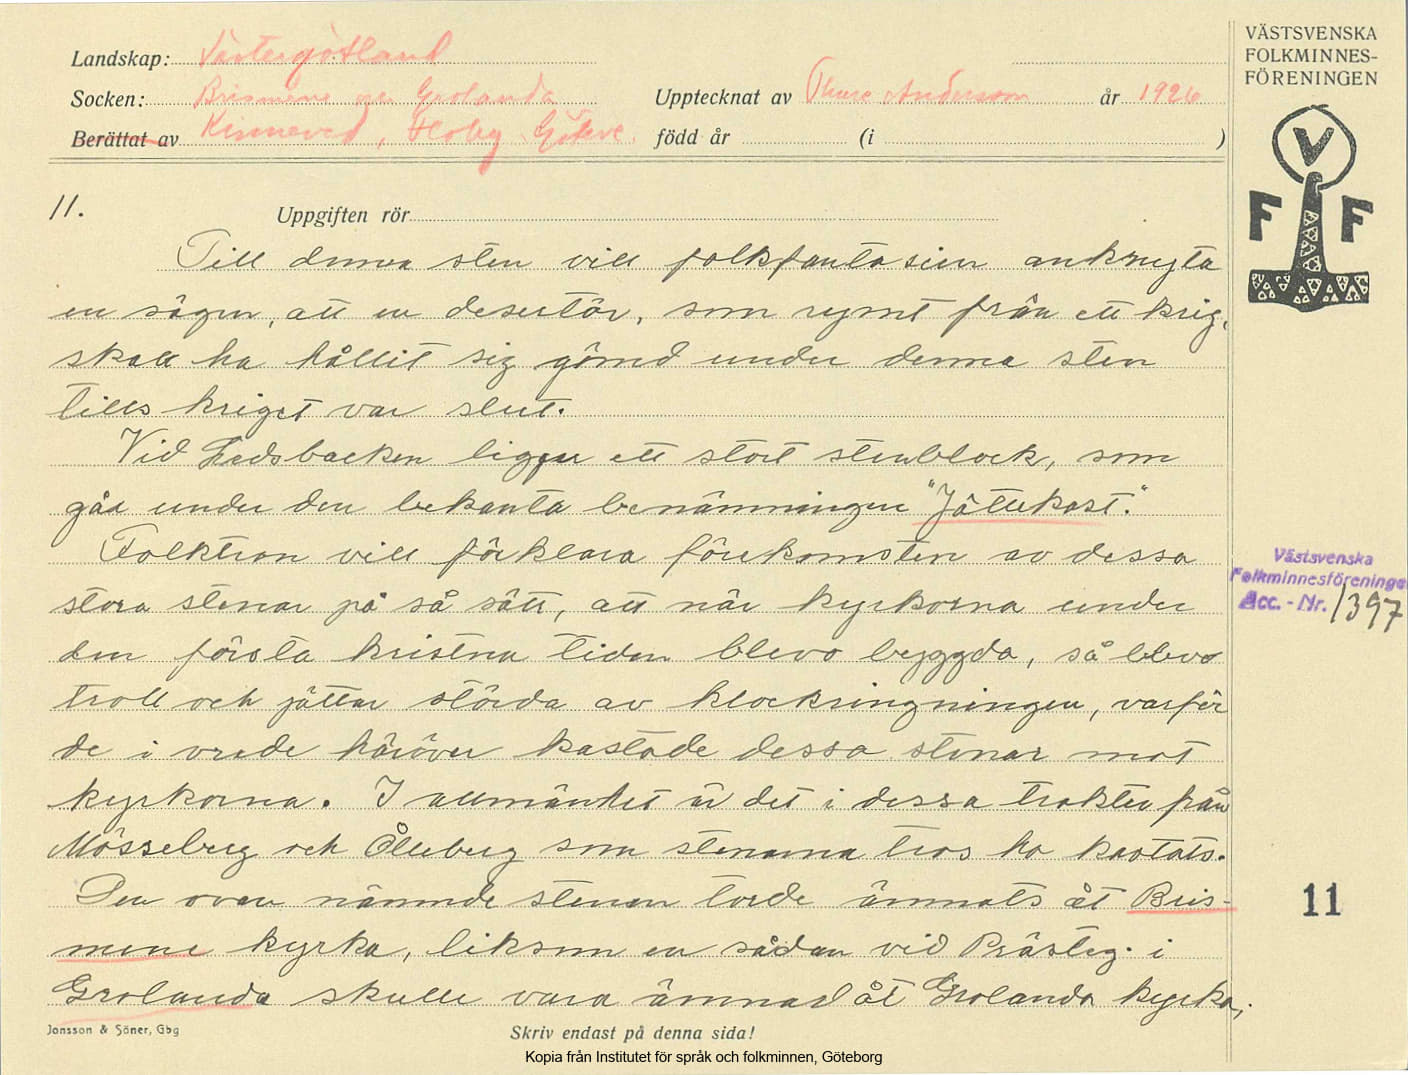 Landskap: Västergötland
Socken: Brismene och Grolanda
Upptecknat av Thure Andersson år 1926
Berättat av Kinneved, Floby Gökve.
född år (i )
VÄSTSVENSKA
FOLKMINNES-
FÖRENINGEN
V
F F
11.
Uppgiften rör
Till denna sten vill folkfantasien anknyta
en sägen, att en desertör, som rymt från ett krig,
skall ha hållit sig gömd under denna sten
tills kriget var slut.
Vid Ledsbacken ligger ett stort stenblock, som
går under den bekanta benämningen "Jättekast".
Folktron vill förklara förekomsten av dessa
stora stenar på så sätt, att när kyrkorna under
den första kristna tiden blevo byggda, så blevo
troll och jättar störda av klockringningen, varför
de i vrede häröver kastade dessa stenar mot
kyrkorna. I allmänhet är det i dessa trakter från
Mösseberg och Ålleberg som stenarna tros ha kastats.
Den ovan nämnde stenen torde ämnats åt Bris-
mene kyrka, liksom en sådan vid Prästeg. i
Grolanda skulle vara ämnad åt Grolanda kyrka,
Västsvenska
Folkminnesföreninge
Acc. - Nr. 1397
11
Jonsson & Söner, Gbg
Skriv endast på denna sida!
Kopia från Institutet för språk och folkminnen, Göteborg